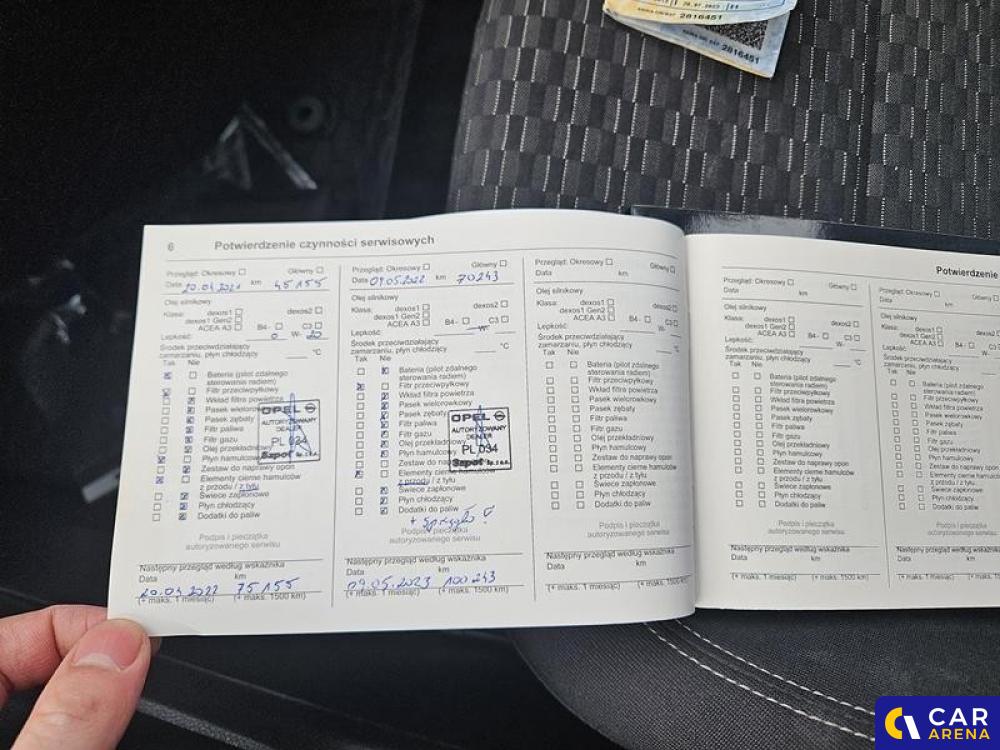 20.07.2023
2816451
2816451
6 Potwierdzenie czynności serwisowych
Przegląd: Okresowy Główny
Data 20.04.2021 km 45155
Olej silnikowy
Klasa: dexos1 dexos2
dexos1 Gen2
ACEA A3 B4- C3
Lepkość: 0 W- 20
Środek przeciwdziałający
zamarzaniu, płyn chłodzący °C
Tak Nie
Bateria (pilot zdalnego
sterowania radiem)
Filtr przeciwpyłkowy
Wkład filtra powietrza
Pasek wielorowkowy
Pasek zębaty
Filtr paliwa
Filtr gazu
Olej przekładniowy
Płyn hamulcowy
Zestaw do naprawy opon
Elementy cierne hamulców
z przodu / z tyłu
Świece zapłonowe
Płyn chłodzący
Dodatki do paliw
OPEL
AUTORYZOWANY
DEALER
PL 034
Szpot Sp. z o.o.
Podpis i pieczątka
autoryzowanego serwisu
Następny przegląd według wskaźnika
Data km
20.04.2022 75155
(+ maks. 1 miesiąc) (+ maks. 1500 km)
Przegląd: Okresowy Główny
Data 09.05.2022 km 70243
Olej silnikowy
Klasa: dexos1 dexos2
dexos1 Gen2
ACEA A3 B4- C3
Lepkość: W-
Środek przeciwdziałający
zamarzaniu, płyn chłodzący °C
Tak Nie
Bateria (pilot zdalnego
sterowania radiem)
Filtr przeciwpyłkowy
Wkład filtra powietrza
Pasek wielorowkowy
Pasek zębaty
Filtr paliwa
Filtr gazu
Olej przekładniowy
Płyn hamulcowy
Zestaw do
Elementy cierne hamulców
z przodu / z tyłu
Świece zapłonowe
Płyn chłodzący
Dodatki do paliw
OPEL
AUTORYZOWANY
DEALER
PL 034
Szpot Sp. z o.o.
Podpis i pieczątka
autoryzowanego serwisu
Następny przegląd według wskaźnika
Data km
09.05.2023 100243
(+ maks. 1 miesiąc) (+ maks. 1500 km)
Przegląd: Okresowy Główny
Data km
Olej silnikowy
Klasa: dexos1 dexos2
dexos1 Gen2
ACEA A3 B4- C3
Lepkość: W-
Środek przeciwdziałający
zamarzaniu, płyn chłodzący °C
Tak Nie
Bateria (pilot zdalnego
sterowania radiem)
Filtr przeciwpyłkowy
Wkład filtra powietrza
Pasek wielorowkowy
Pasek zębaty
Filtr paliwa
Filtr gazu
Olej przekładniowy
Płyn hamulcowy
Zestaw do naprawy opon
Elementy cierne hamulców
z przodu / z tyłu
Świece zapłonowe
Płyn chłodzący
Dodatki do paliw
Podpis i pieczątka
autoryzowanego serwisu
Następny przegląd według wskaźnika
Data km
(+ maks. 1 miesiąc) (+ maks. 1500 km)
Potwierdzenie
Przegląd: Okresowy Główny
Data km
Olej silnikowy
Klasa: dexos1 dexos2
dexos1 Gen2
ACEA A3 B4- C3
Lepkość: W-
Środek przeciwdziałający
zamarzaniu, płyn chłodzący °C
Tak Nie
Bateria (pilot zdalnego
sterowania radiem)
Filtr przeciwpyłkowy
Wkład filtra powietrza
Pasek wielorowkowy
Pasek zębaty
Filtr paliwa
Filtr gazu
Olej przekładniowy
Płyn hamulcowy
Zestaw do naprawy opon
Elementy cierne hamulców
z przodu / z tyłu
Świece zapłonowe
Płyn chłodzący
Dodatki do paliw
Podpis i pieczątka
autoryzowanego serwisu
Następny przegląd według wskaźnika
Data km
(+ maks. 1 miesiąc) (+ maks. 1500 km)
Przegląd: Okresowy
Data km
Olej silnikowy
Klasa: dexos1
dexos1 Gen2
ACEA A3 B4-
Lepkość:
Środek przeciwdziałający
zamarzaniu, płyn chłodzący
Tak Nie
Bateria (pilot zdalnego
sterowania radiem)
Filtr przeciwpyłkowy
Wkład filtra powietrza
Pasek wielorowkowy
Pasek zębaty
Filtr paliwa
Filtr gazu
Olej przekładniowy
Płyn hamulcowy
Zestaw do naprawy opon
Elementy cierne hamulców
z przodu / z tyłu
Świece zapłonowe
Płyn chłodzący
Dodatki do paliw
Podpis i pieczątka
autoryzowanego serwisu
Następny przegląd według wskaźnika
Data km
(+ maks. 1 miesiąc) (+ maks. 1500
CAR
ARENA